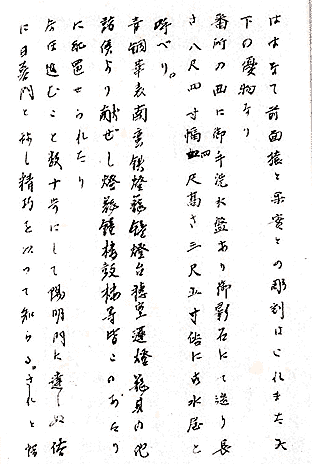 はすなて前面猿と果實との彫刻はこれまた天
下の優物なり
番所の西に御手洗水盤あり御影石にて造り長
さ八尺四寸幅四尺高さ三尺五寸俗に お水屋と
呼べり。
青銅華表南蛮鉄燈籠 燈台穂屋 燈籠其の他
諸侯より献ぜし燈籠鐘楼鼓楼等皆このあたり
に配置せられたり
今庄 進むこと数十歩にして陽明門に達しぬ俗
に日暮門と称し精巧を以つて知らる。されど